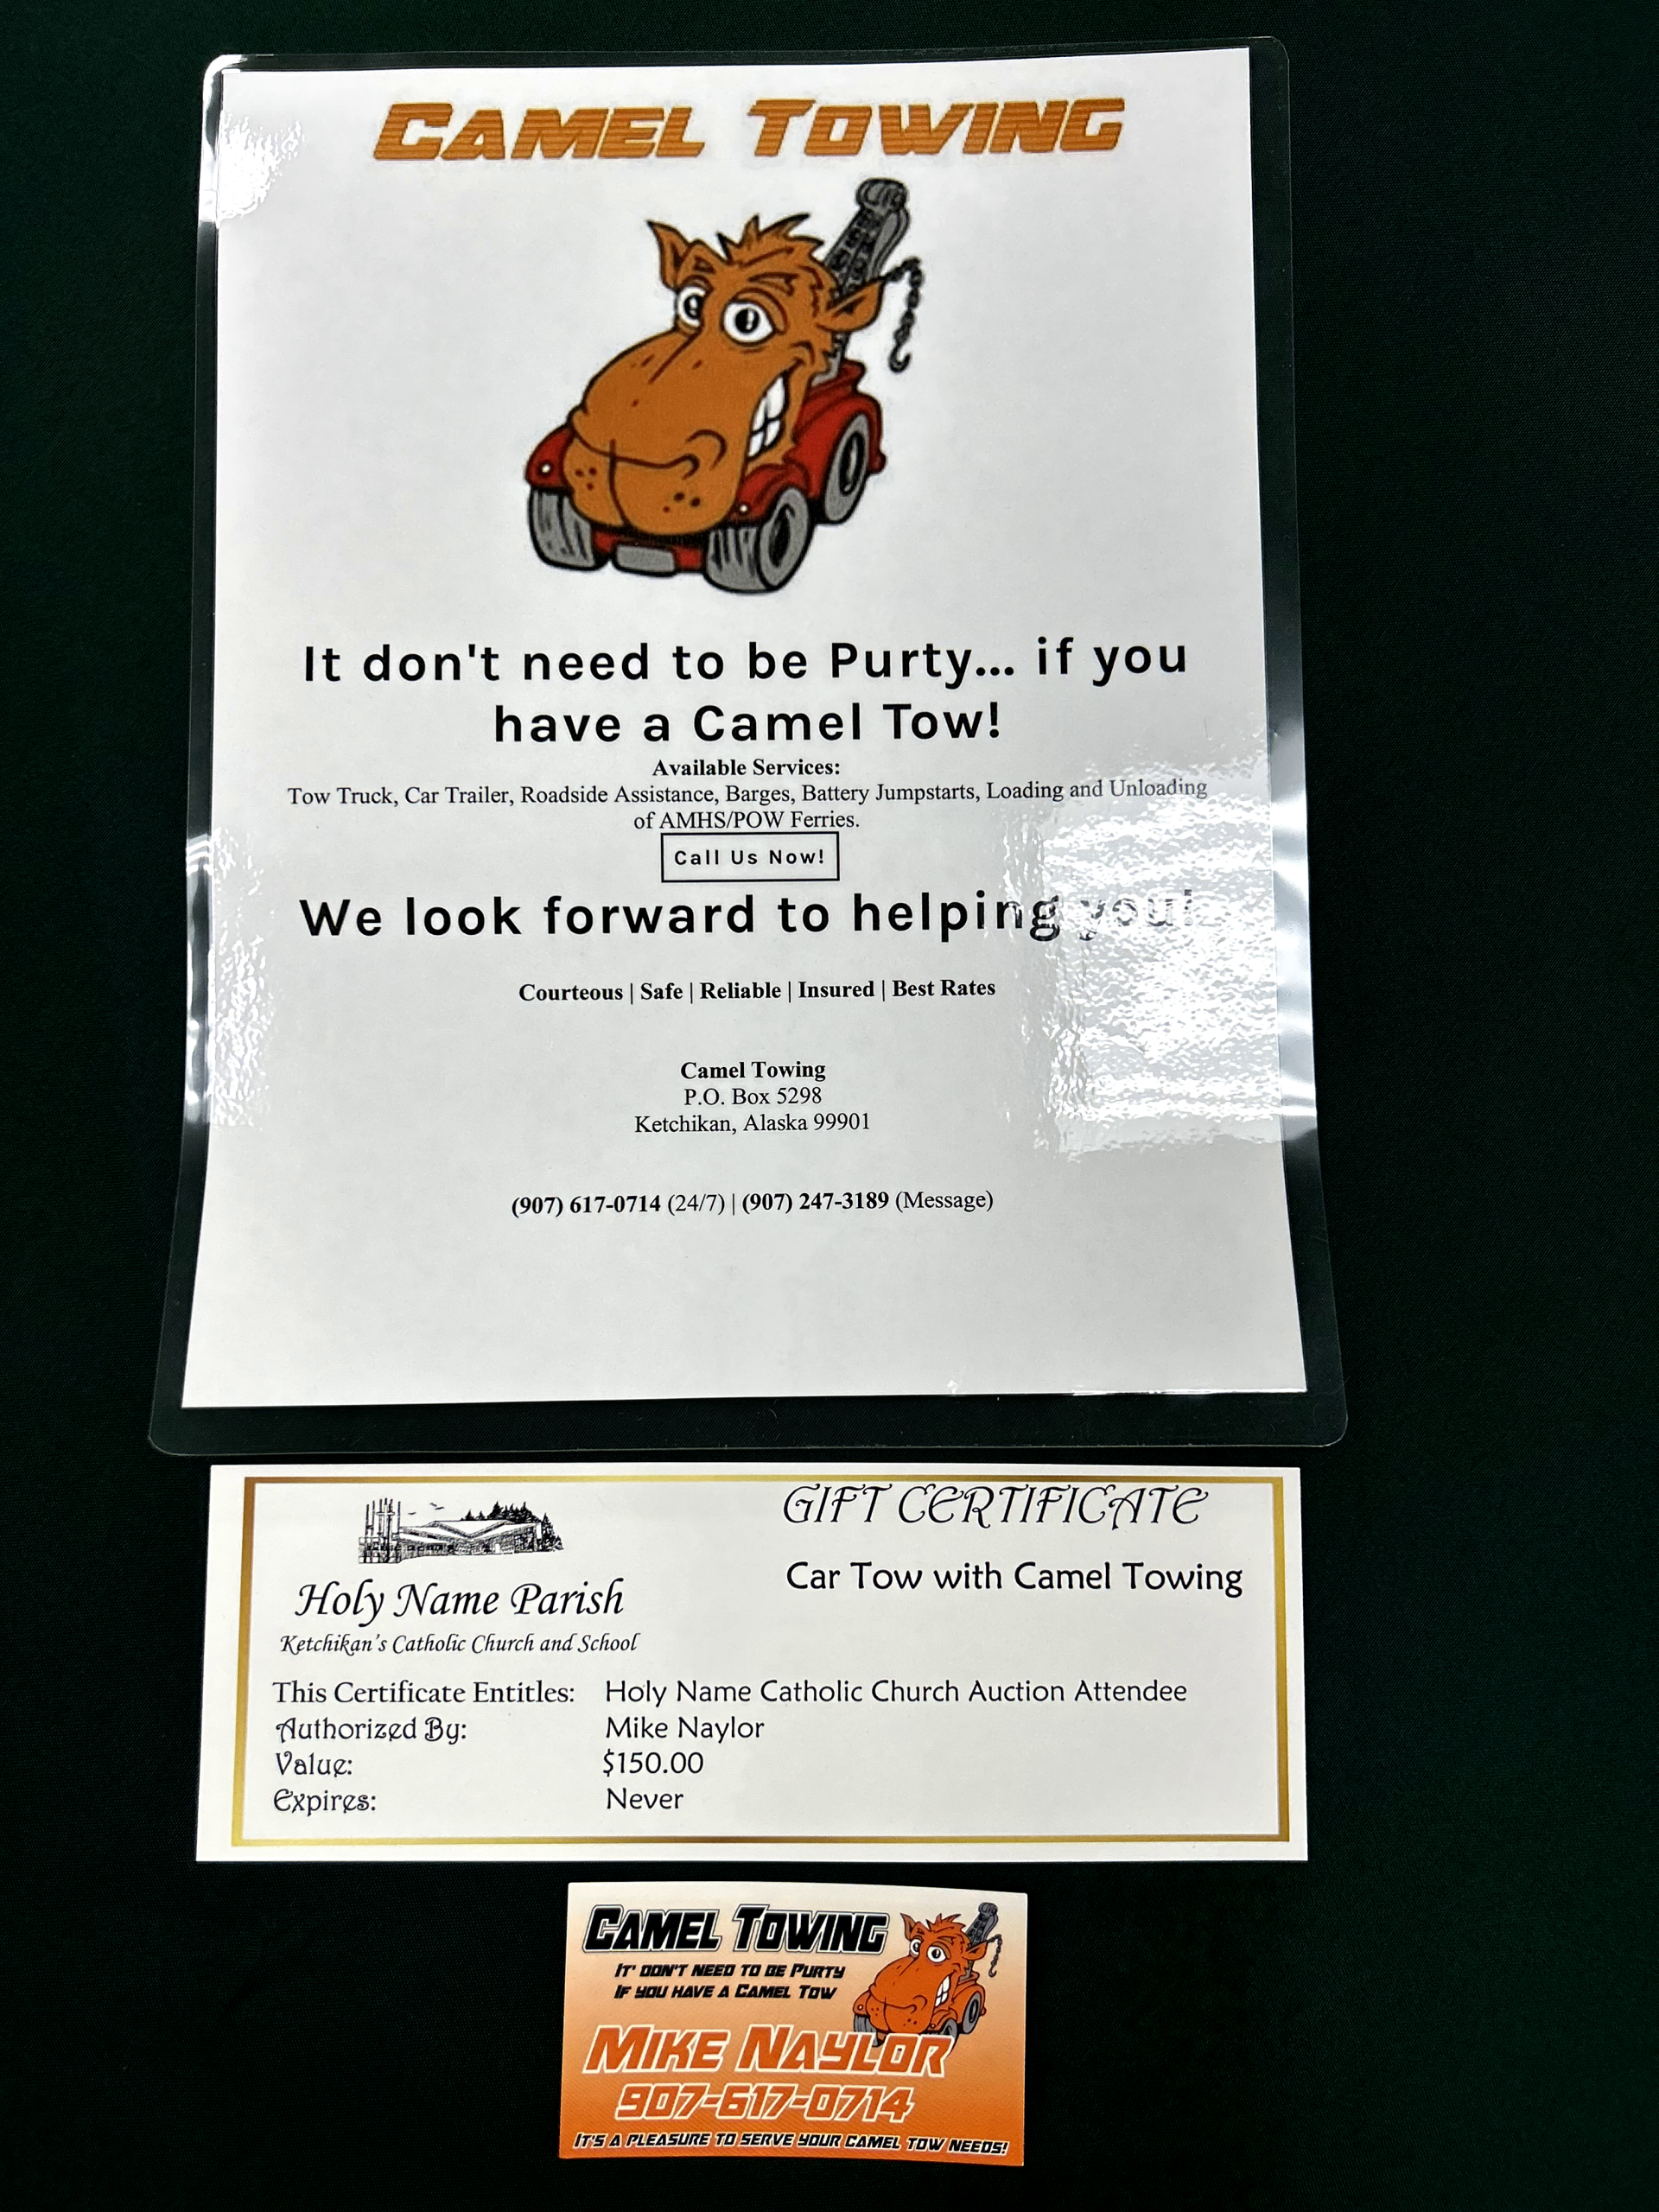 CAMEL TOWING
It don't need to be Purty... if you
have a Camel Tow!
Available Services:
Tow Truck, Car Trailer, Roadside Assistance, Barges, Battery Jumpstarts, Loading and Unloading
of AMHS/POW Ferries.
Call Us Now!
We look forward to helping you!
Courteous | Safe | Reliable | Insured | Best Rates
Camel Towing
P.O. Box 5298
Ketchikan, Alaska 99901
(907) 617-0714 (24/7) | (907) 247-3189 (Message)
GIFT CERTIFICATE
Car Tow with Camel Towing
Holy Name Parish
Ketchikan's Catholic Church and School
This Certificate Entitles: Holy Name Catholic Church Auction Attendee
Authorized By: Mike Naylor
Value: $150.00
Expires: Never
CAMEL TOWING
IT' DON'T NEED TO BE PURTY
IF YOU HAVE A CAMEL TOW
MIKE NAYLOR
907-617-0714
IT'S A PLEASURE TO SERVE YOUR CAMEL TOW NEEDS!